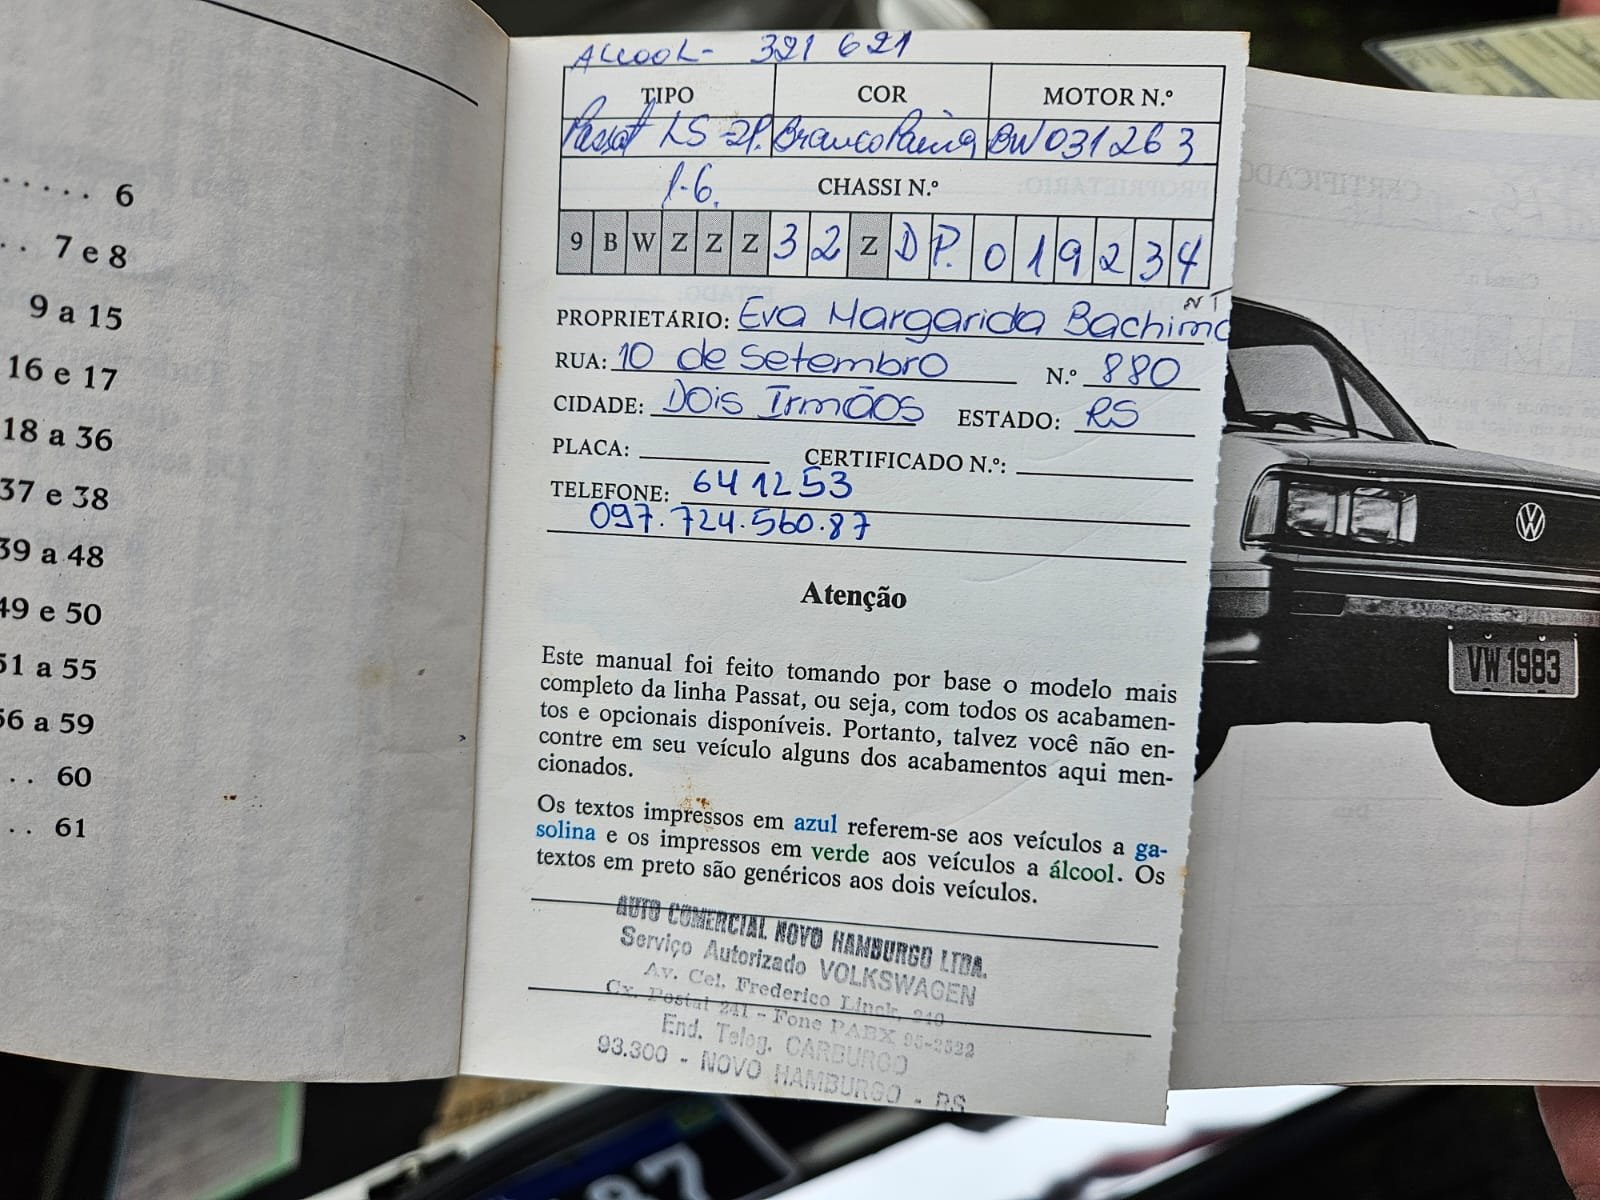 ..... 6
.. 7 e 8
9 a 15
16 e 17
18 a 36
37 e 38
39 a 48
49 e 50
51 a 55
56 a 59
.. 60
.. 61
ALCOOL - 321 621
TIPO COR MOTOR N.º
Passat LS 2P. Branco Paina BW031263
1.6. CHASSI N.º
9 B W Z Z Z 3 2 Z D P. 0 1 9 2 3 4
PROPRIETÁRIO: Eva Margarida
RUA: 10 de Setembro N.º 880
CIDADE: Dois Irmãos ESTADO: RS
PLACA: CERTIFICADO N.º:
TELEFONE: 641253
097.724.560.87
Atenção
Este manual foi feito tomando por base o modelo mais
completo da linha Passat, ou seja, com todos os acabamen-
tos e opcionais disponíveis. Portanto, talvez você não en-
contre em seu veículo alguns dos acabamentos aqui men-
cionados.
Os textos impressos em azul referem-se aos veículos a ga-
solina e os impressos em verde aos veículos a álcool. Os
textos em preto são genéricos aos dois veículos.
AUTO COMERCIAL NOVO HAMBURGO LTDA.
Serviço Autorizado VOLKSWAGEN
Av. Cel. Frederico Linck,
Cx. Postal 241 - Fone PABX 95-2522
End. Teleg. CARBURGO
93.300 - NOVO HAMBURGO - RS
VW 1983